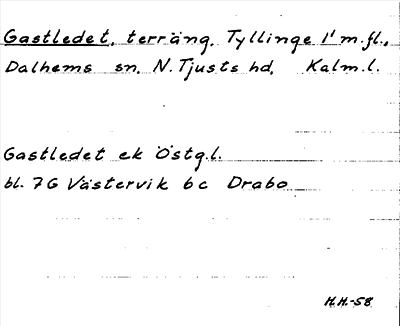 Gastledet, terräng, Tyllinge 1¹ m.fl.,
Dalhems sn, N. Tjusts hd, Kalm. l.
Gastledet ek Östg.l.
bl. 7G Västervik bc Drabo
H.H.-58